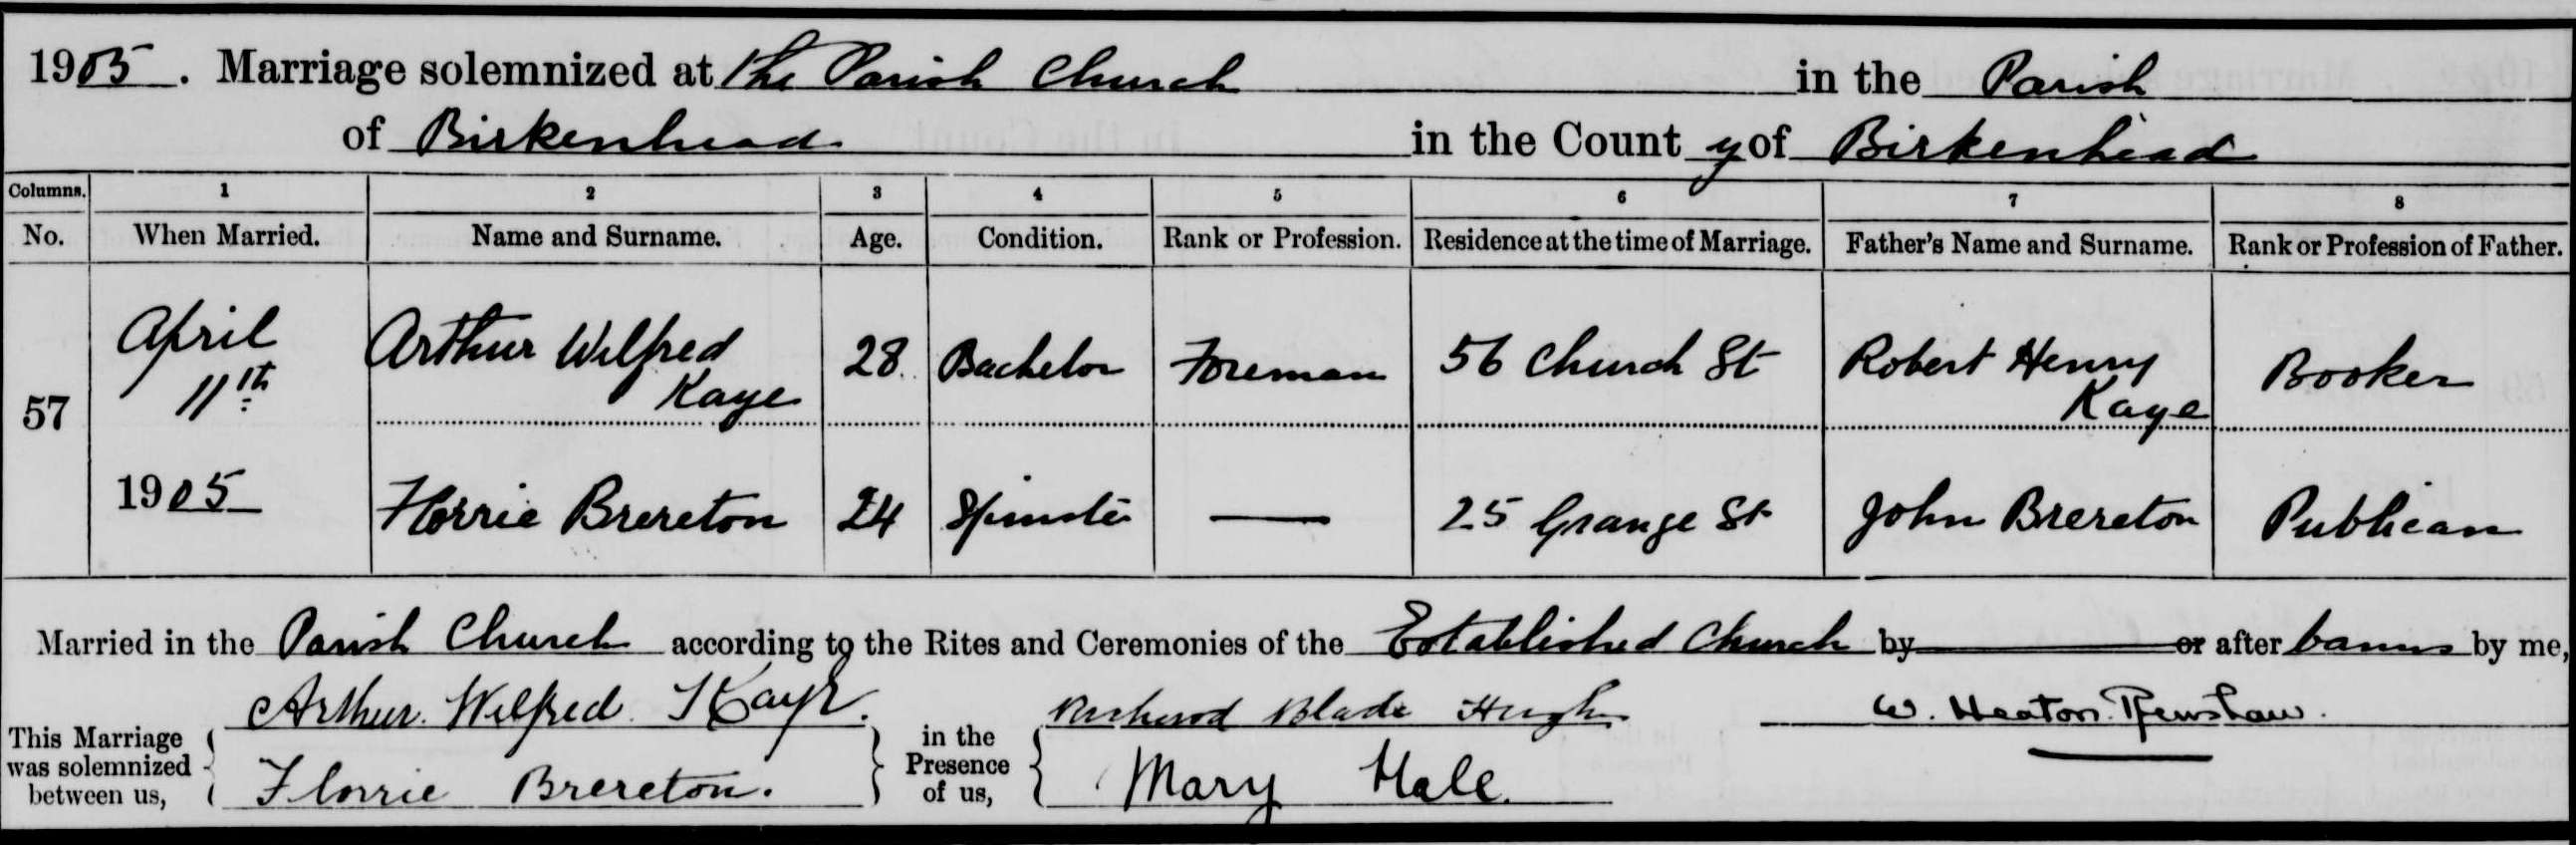 1905. Marriage solemnized at The Parish Church in the Parish
of Birkenhead in the County of Birkenhead
Columns. 1 2 3 4 5 6 7 8
No. When Married. Name and Surname. Age. Condition. Rank or Profession. Residence at the time of Marriage. Father's Name and Surname. Rank or Profession of Father.
57 April 11th 1905 Arthur Wilfred Kaye 28 Bachelor Foreman 56 Church St Robert Henry Kaye Booker
Florrie Brereton 24 Spinster — 25 Grange St John Brereton Publican
Married in the Parish Church according to the Rites and Ceremonies of the Established Church by or after banns by me,
This Marriage was solemnized between us, Arthur Wilfred Kaye. in the Presence of us, Blade Hugh W. Heaton Renshaw.
Florrie Brereton. Mary Hale.